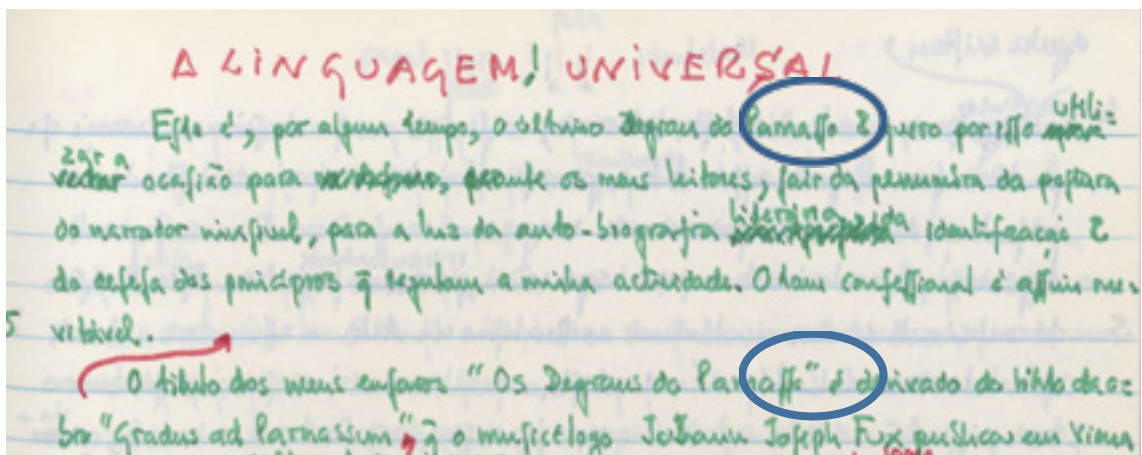 A LINGUAGEM! UNIVERSAL
Eſte é, por algum tempo, o último Degrau do Parnaſſo & quero por iſſo utili=
zar a ocaſião para, perante os meus leitores, ſair da penumbra da poſtura
do narrador inviſivel, para a luz da auto-biografia literária, da identificação &
da defeſa dos princípios q̃ regulam a minha actividade. O tom confeſſional é aſſim ine=
vitável.
O título dos meus enſaios "Os Degraus do Parnaſſo" é derivado do título do li=
bro "Gradus ad Parnassum", q̃ o muſicólogo Johann Joſeph Fux publicou em Viena